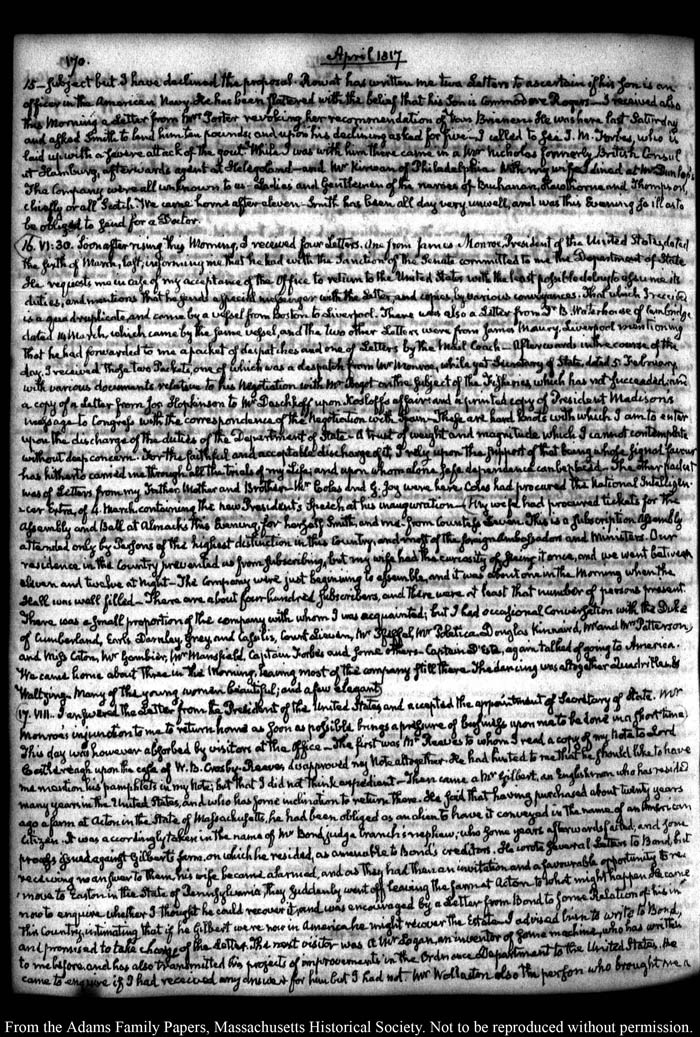 170.
April 1817
15 – subject but I have declined the proposal. Rowat has written me two Letters to ascertain if his Son is an
officer in the American Navy. He has been flattered with the belief that his Son is Commodore Rogers – I received also
this Morning a Letter from Mrs Porter revoking her recommendation of Van Brienen. He was here last Saturday
and asked Smith to lend him ten pounds; and upon his declining asked for five – I called to see J. M. Forbes, who is
laid up with a severe attack of the gout. While I was with him there came in a Mr Nicholas formerly British Consul
at Hamburg, afterwards agent at Heligoland – and Mr Kirwan of Philadelphia. With my wife dined at Mr
The Company were all unknown to us – Ladies and Gentlemen of the names of Buchanan, Hawthorne and Thompson,
chiefly or all Scotch. We came home after eleven – Smith has been all day very unwell, and was this Evening so ill as to
be obliged to send for a Doctor.
16. VI:30. Soon after rising this Morning, I received four Letters. One from James Monroe, President of the United States, dated
the sixth of March, last, informing me that he had with the Sanction of the Senate committed to me the Department of State
He requests me in case of my acceptance of the Office to return to the United States with the least possible delay to assume its
duties, and mentions that he sends a special messenger with the Letter, and copies by various conveyances. That which I received
is a quadruplicate, and came by a vessel from Boston to Liverpool. There was also a Letter from Dr B. Waterhouse of Cambridge
dated 14 March, which came by the same vessel, and the two other Letters were from James Maury, Liverpool mentioning
that he had forwarded to me a packet of despatches and one of Letters by the Mail Coach – Afterwards in the course of the
day, I received those two Packets, one of which was a despatch from Mr Monroe, while yet Secretary of State, dated 5 February
with various documents relative to his Negotiation with Mr Bagot on the subject of the Fisheries, which has not succeeded; and
a copy of a Letter from Jos. Hopkinson to Mr Daschkoff upon Kosloff's affair; and a printed copy of President Madison's
message to Congress with the correspondence of the Negotiation with Spain – These are hard knots with which I am to enter
upon the discharge of the duties of the Department of State – A trust of weight and magnitude which I cannot contemplate
without deep concern. For the faithful and acceptable discharge of it, I rely upon the support of that being whose signal favour
has hitherto carried me through all the trials of my Life; and upon whom alone safe dependence can be placed – The other packet
was of Letters from my Father, Mother and Brother – Mr Coles and G. Joy were here Coles had procured the National Intelligen-
cer Extra, of 4. March containing the new President's Speech at his inauguration – My wife had procured tickets for the
Assembly and Ball at Almack's this Evening, for herself, Smith, and me, from Countess Lieven. This is a subscription Assembly
attended only by Persons of the highest distinction in this Country, and most of the foreign Ambassadors and Ministers. Our
residence in the Country prevented us from subscribing, but my wife had the curiosity of seeing it once, and we went between
eleven and twelve at Night – The Company were just beginning to assemble, and it was about one in the Morning when the
Hall was well filled – There are about four hundred subscribers, and there were at least that number of persons present.
There was a small proportion of the company with whom I was acquainted; but I had occasional Conversation with the Duke
of Cumberland, Earls Darnley, Grey and Cassilis, Count Lieven, Mr Pfeffel, Mr Poletica, Douglas Kinnaird, Mr and Mrs Patterson,
and Miss Caton, Mr Gambier, Mr Mansfield, Captain Forbes and some others – Captain D'Este, again talked of going to America.
We came home about Three in the Morning, leaving most of the company still there. The dancing was altogether Quadrilles
Waltzing. Many of the young women beautiful; and a few elegant
17. VIII. I answered the Letter from the President of the United States and accepted the appointment of Secretary of State. Mr
Monroe's injunction to me to return home as soon as possible brings a pressure of business upon me to be done in a short time.
This day was however absorbed by visitors at the office – The first was Mr Reeves to whom I read a copy of my Note to Lord
Castlereagh upon the case of W. B. Crosby. Reeves disapproved my Note altogether. He had hinted to me that he should like to have
me mention his pamphlets in my Note; but that I did not think expedient – Then came a Mr Gilbert, an Englishman who has resided
many years in the United States, and who has some inclination to return there. He said that having purchased about twenty years
ago a farm at Acton in the State of Massachusetts, he had been obliged as an alien to have it conveyed in the name of an American
Citizen. It was accordingly taken in the name of Mr Bond, judge Cranch's nephew; who some years afterwards failed, and some
process issued against Gilbert's farm, on which he resided, as amenable to Bond's creditors. He wrote several Letters to Bond, but
receiving no answer to them, his wife became alarmed, and as they had then an invitation and a favourable opportunity to re-
move to Easton in the State of Pennsylvania, they suddenly went off, leaving the farm at Acton to what might happen. He came
now to enquire whether I thought he could recover it; and was encouraged by a Letter from Bond to some Relation of his in
this Country, intimating that if he Gilbert were now in America he might recover the Estate. I advised him to write to Bond,
and promised to take charge of the Letter. The next visitor was a Mr Logan, an inventor of some machine, who has written
to me before, and has also transmitted his projects of improvements in the Ordnance Department to the United States. He
came to enquire if I had received any answer for him, but I had not. Mr Wollaston also the person who brought me a
From the Adams Family Papers, Massachusetts Historical Society. Not to be reproduced without permission.